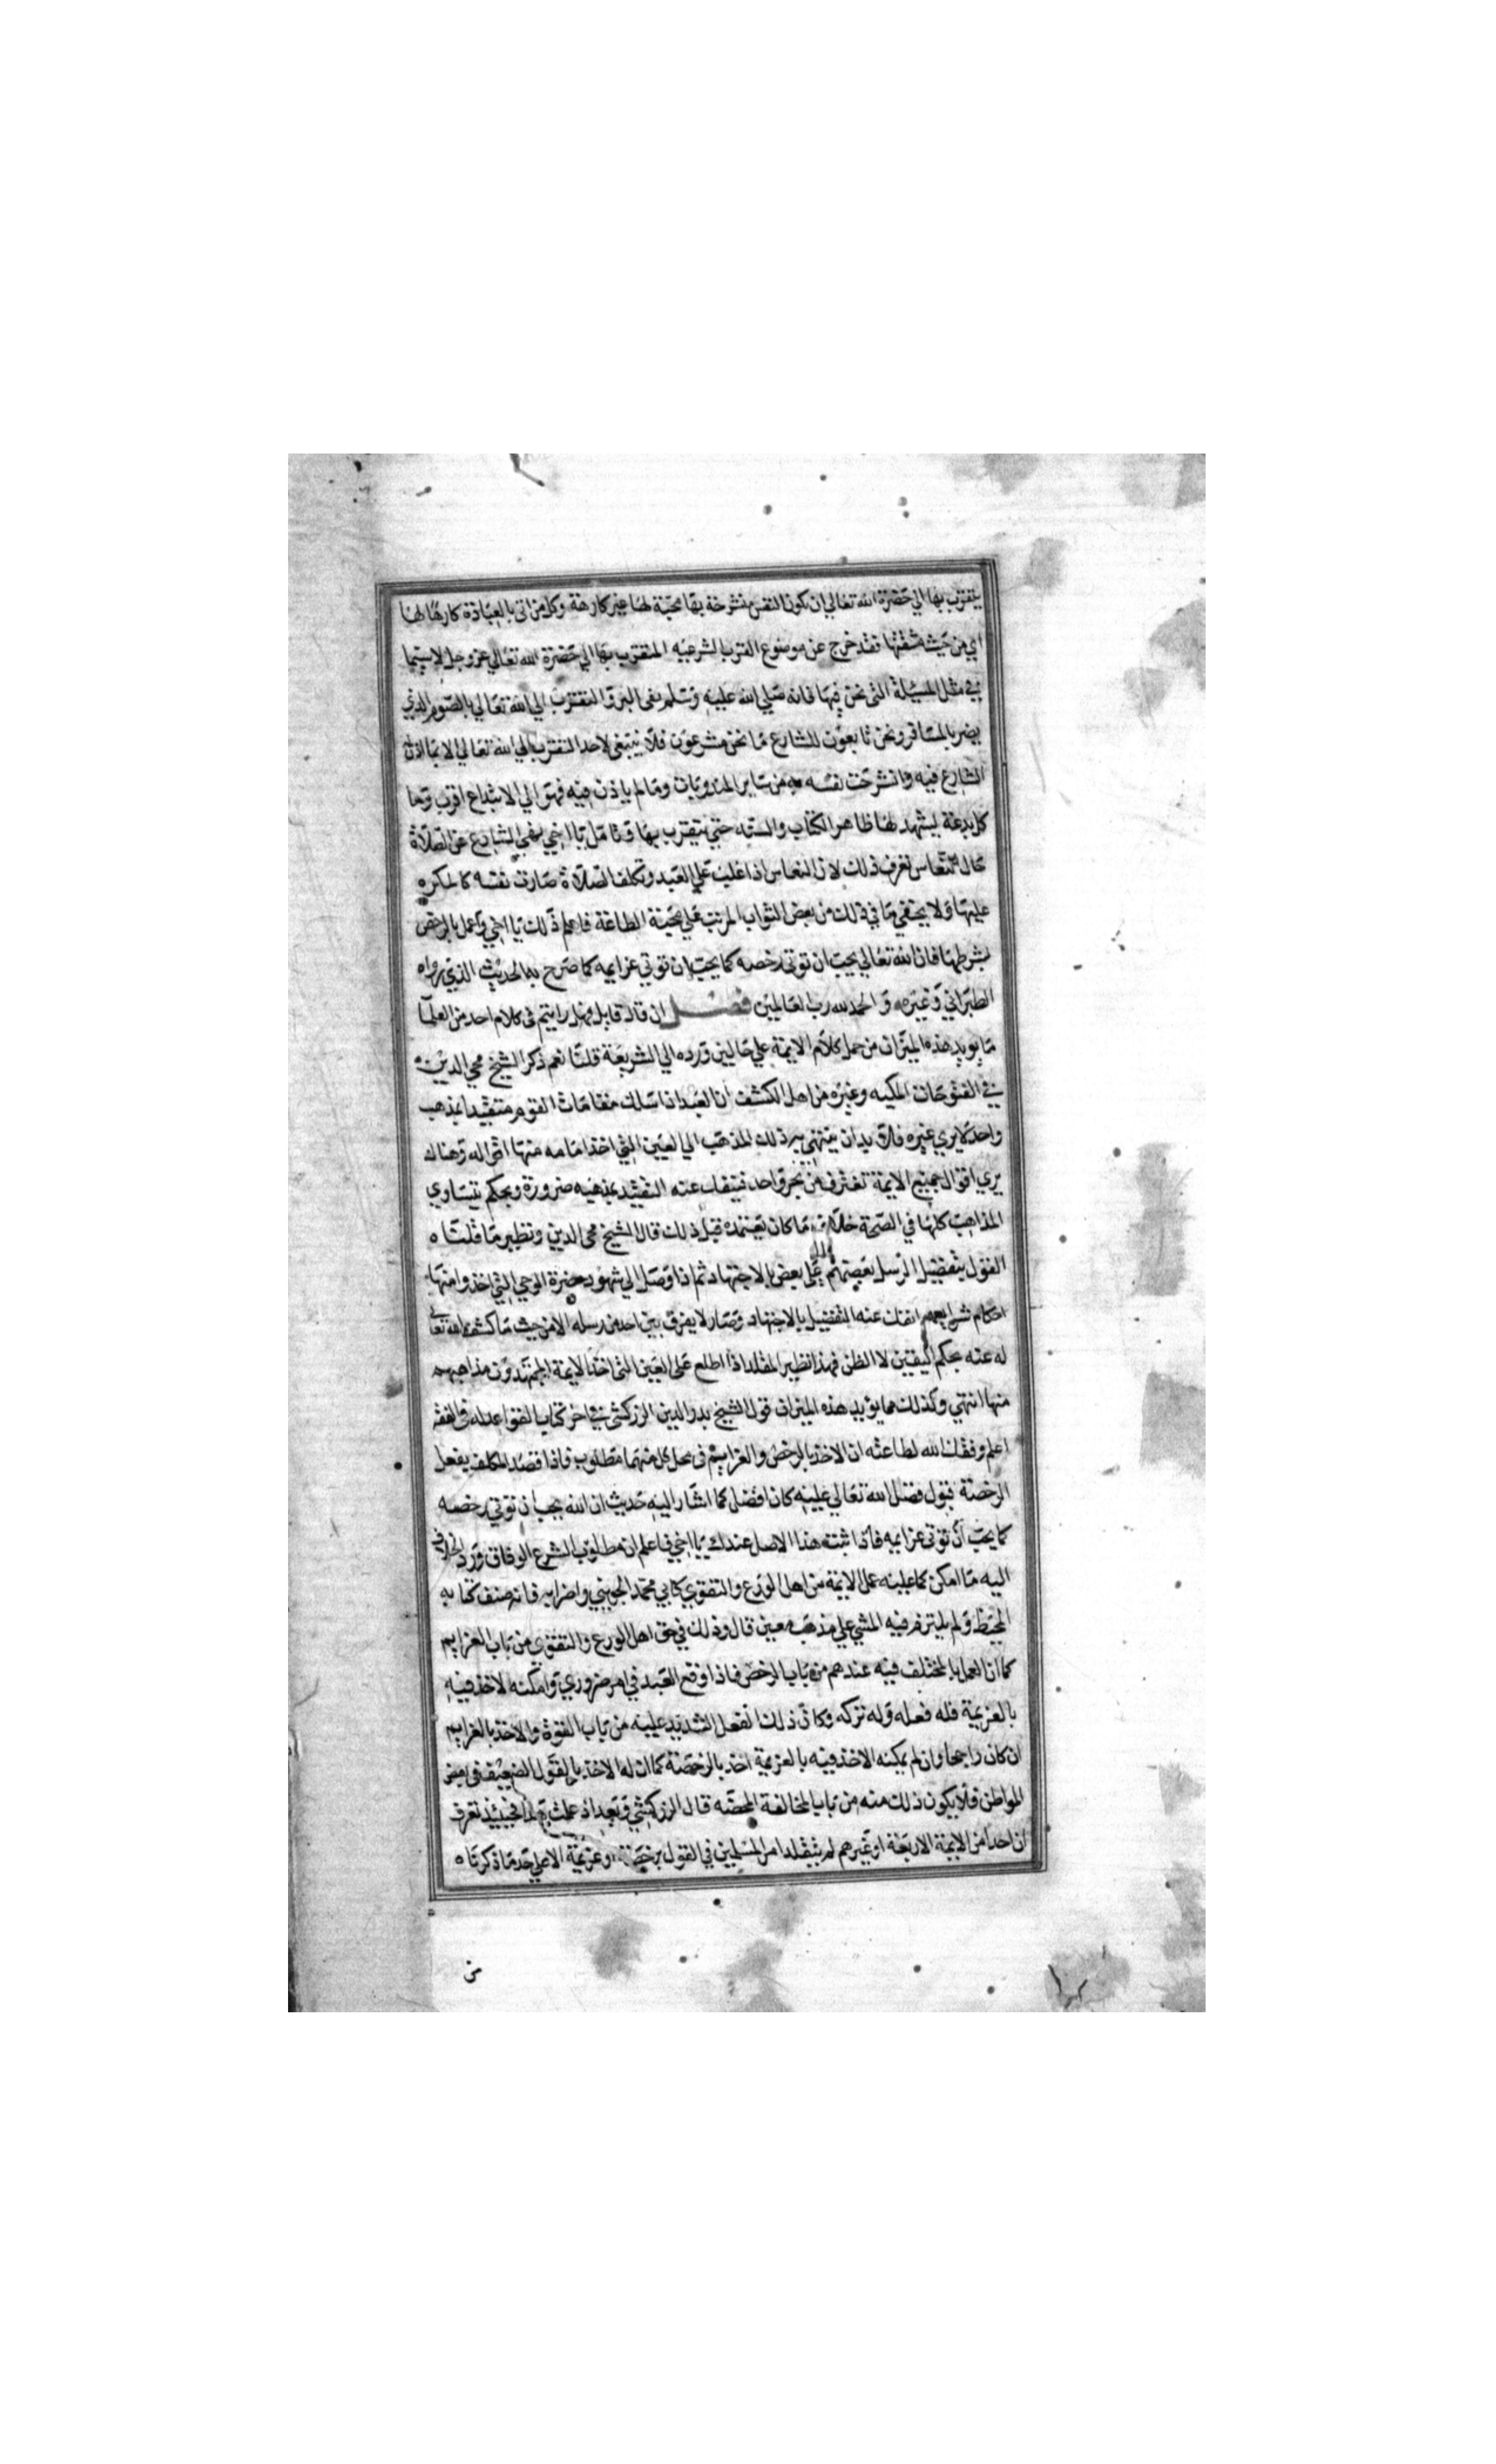 يتقرب بها الي حضرة الله تعالي ان تكون النفس منشرحة بها محبّة لها غير كارهة وكل من اتى بالعبادة كارها لها
اي من حيث مشقتها فقد خرج عن موضوع القرب الشرعيه المتقرب بها الي حضرة الله تعالي عز وجل لاسيما
في مثل المسئلة التى نحن فيها فانه صلي الله عليه وسلم نفى البر والتقرب الي الله تعالي بالصوم الذي
يضر بالمسافر ونحن تابعون للشارع ما نحن مشرعون فلا ينبغى لاحد التقرب الي الله تعالي الا بما اذن
الشارع فيه وانشرحت نفسه به من ساير المندوبات وما لم ياذن فيه فهو الي الابتداع اقرب وما
كل بدعة يشهد لها ظاهر الكتاب والسنه حتي يتقرب بها وتامل يا اخي نهي الشارع عن الصلاة
حال النعاس تعرف ذلك لان النعاس اذا غلب علي العبد وتكلف الصلاة صارت نفسه كالمكره
عليها ولا يخفي ما في ذلك من بعض الثواب المرتب علي محبة الطاعة فاعلم ذلك يا اخي واعمل بالرخص
بشرطها فان الله تعالي يحب ان توتى رخصه كما يحب ان توتي عزايمه كما صرح به الحديث الذي رواه
الطبراني وغيره والحمد لله رب العالمين فصل ان قال قايل فهل رايتم فى كلام احد من العلما
ما يويد هذه الميزان من حمل كلام الايمة علي حالين ورده الي الشريعة قلنا نعم ذكر الشيخ محي الدين
في الفتوحات المكيه وغيره من اهل الكشف ان العبد اذا سلك مقامات القوم متقيدا بمذهب
واحد لا يري غيره فلا بد ان ينتهي به ذلك المذهب الي العين التي اخذ امامه منها اقواله وهناك
يري اقوال جميع الايمة تغترف من بحر واحد فينفك عنه التقيد بمذهبه ضرورة ويحكم بتساوي
المذاهب كلها في الصحة خلاف ما كان يعتقده قبل ذلك قال الشيخ محى الدين ونظير ما قلناه
القول بتفضيل الرسل بعضهم على بعض بالاجتهاد ثم اذا وصل الي شهود حضرة الوحي التي اخذوا منها
احكام شرايعهم انفك عنه التفضيل بالاجتهاد وصار لا يفرق بين احد من رسله الا من حيث ما كشف الله تعالى
له عنه بحكم اليقين لا الظن فهذا نظير المقلد اذا اطلع على العين التى اخذ الايمة المجتهدون مذاهبهم
منها انتهي وكذلك مما يؤيد هذه الميزان قول الشيخ بدر الدين الزركشى في اخر كتاب القواعد له فى الفقه
اعلم وفقك الله لطاعته ان الاخذ بالرخص والعزايم فى محل كل منهما مطلوب فاذا قصد المكلف بفعل
الرخصة قبول فضل الله تعالي عليه كان افضل كما اشار اليه حديث ان الله يحب ان توتي رخصه
كما يحب ان توتى عزايمه فاذا ثبت هذا الاصل عندك يا اخي فاعلم ان مطلوب الشرع الوفاق ورد الخلاف
اليه ما امكن كما عليه عمل الايمة من اهل الورع والتقوي كابي محمد الجويني واضرابه فانه صنف كتابه
المحيط ولم يلتزم فيه المشي علي مذهب معين قال وذلك في حق اهل الورع والتقوي من باب العزايم
كما ان العمل بالمختلف فيه عندهم من باب الرخص فاذا وقع العبد في امر ضروري وامكنه الاخذ فيه
بالعزيمة فله فعله وله تركه وكان ذلك الفعل الشديد عليه من باب القوة والاخذ بالعزايم
ان كان راجحا وان لم يمكنه الاخذ فيه بالعزيمة اخذ بالرخصة كما ان له الاخذ بالقول الضعيف فى بعض
المواطن فلا يكون ذلك منه من باب المخالفة المحضه قال الزركشي وبعد اذ علمت فحينيذ تعرف
ان احدا من الايمة الاربعة او غيرهم لم يتقلد امر المسلمين في القول برخصة او عزيمة الا علي حد ما ذكرناه